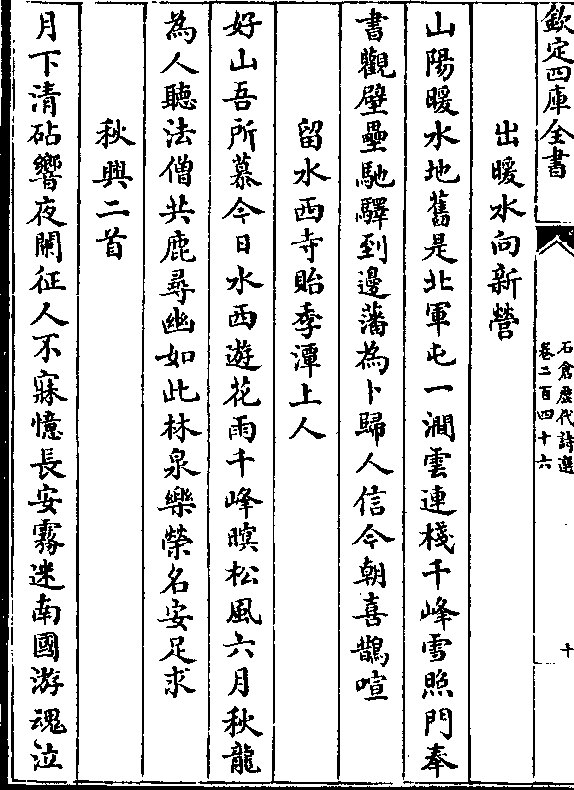 欽定四庫全書
石倉歷代詩選
卷二百四十六
十
出暖水向新營
山陽暖水地舊是北軍屯一澗雲連棧千峰雪照門奉
書觀壁壘馳驛到邊藩為卜歸人信今朝喜鵲喧
留水西寺貽季潭上人
好山吾所慕今日水西遊花雨千峰暝松風六月秋龍
為人聽法僧共鹿尋幽如此林泉樂榮名安足求
秋興二首
月下清砧響夜闌征人不寐憶長安霧迷南國游魂泣